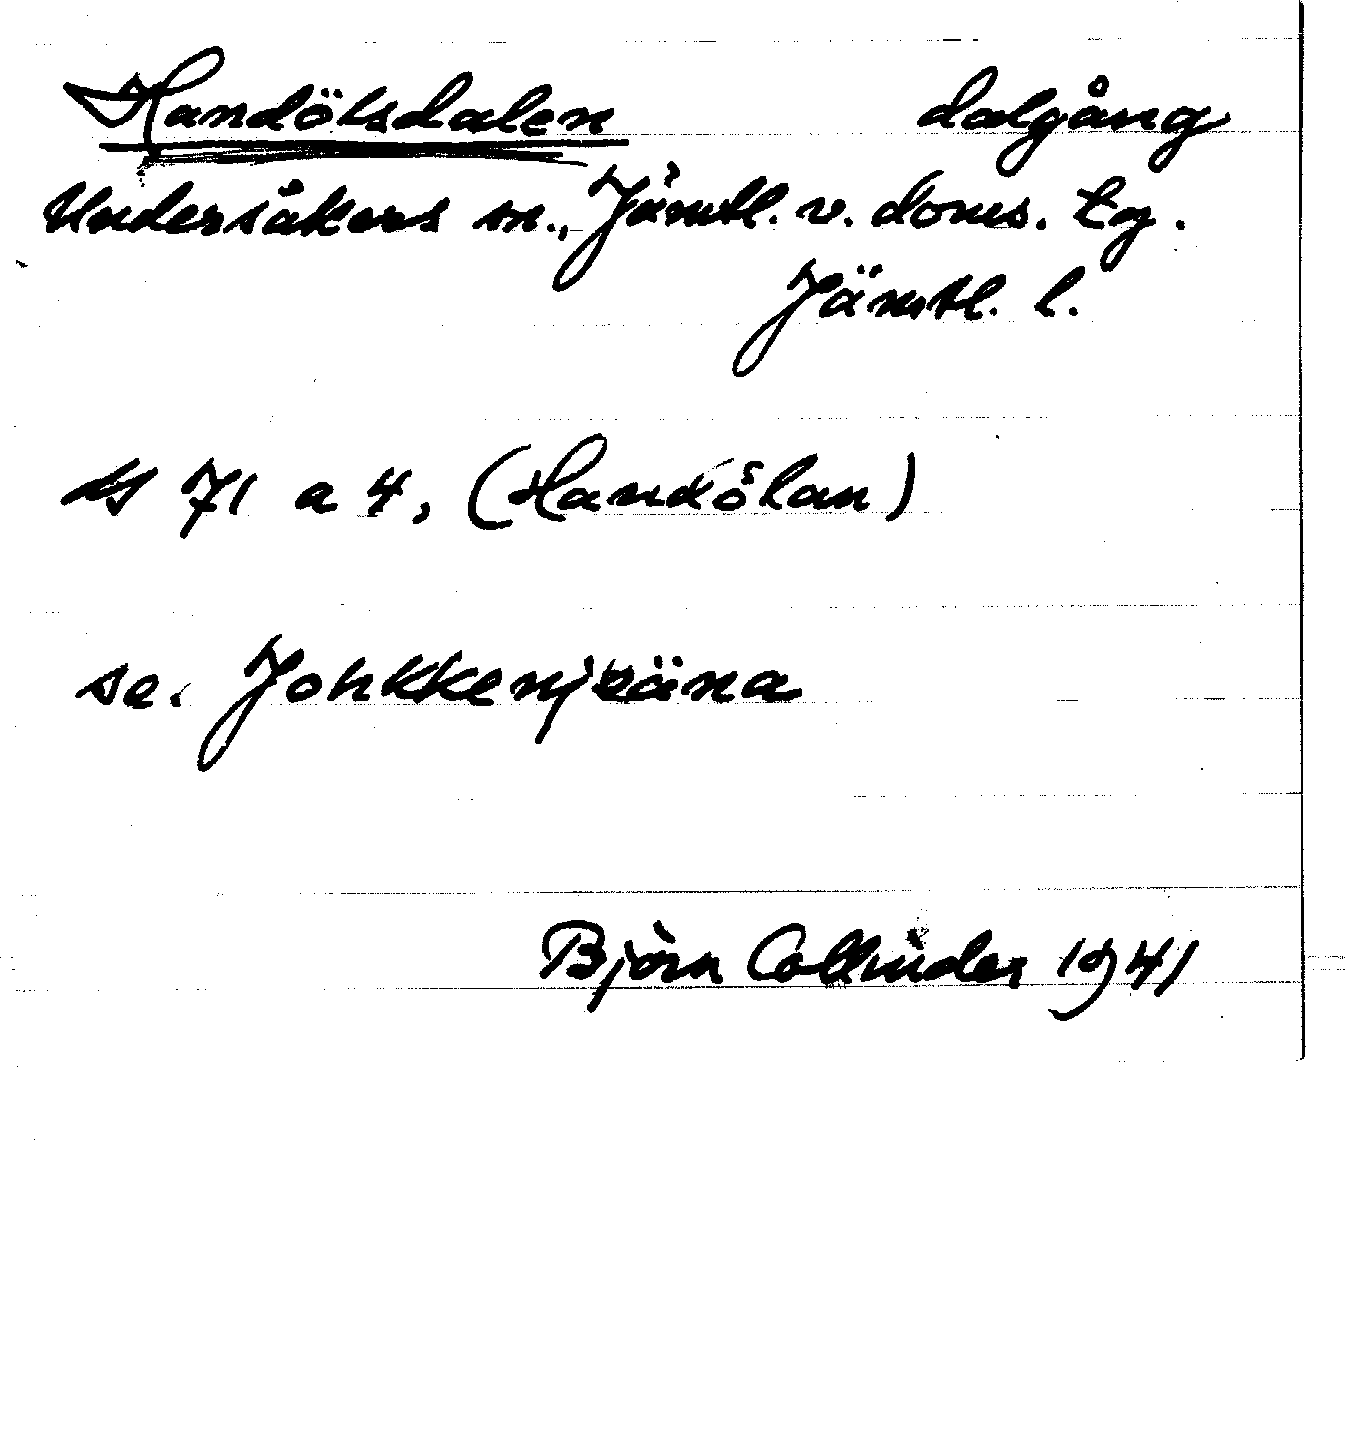 Handölsdalen dalgång
Undersåkers sn., Jämtl. v. doms. tg.
Jämtl. l.
ds 71 a 4, (Handölan)
se.
Björn Collinder 1941